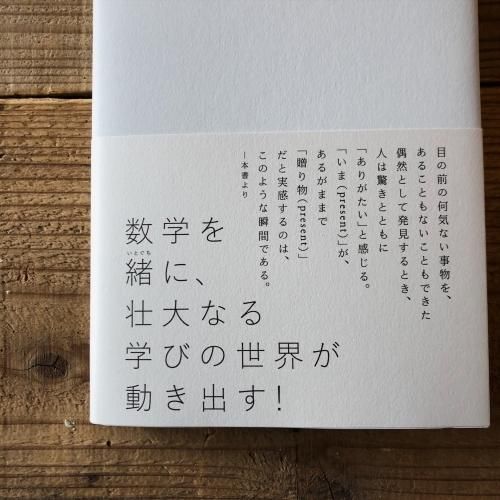 目の前の何気ない事物を、
あることもないこともできた
偶然として発見するとき、
人は驚きとともに
「ありがたい」と感じる。
「いま(present)」が、
あるがままで
「贈り物(present)」
だと実感するのは、
このような瞬間である。
―本書より
数学を
いとぐち
緒に、
壮大なる
学びの世界が
動き出す!